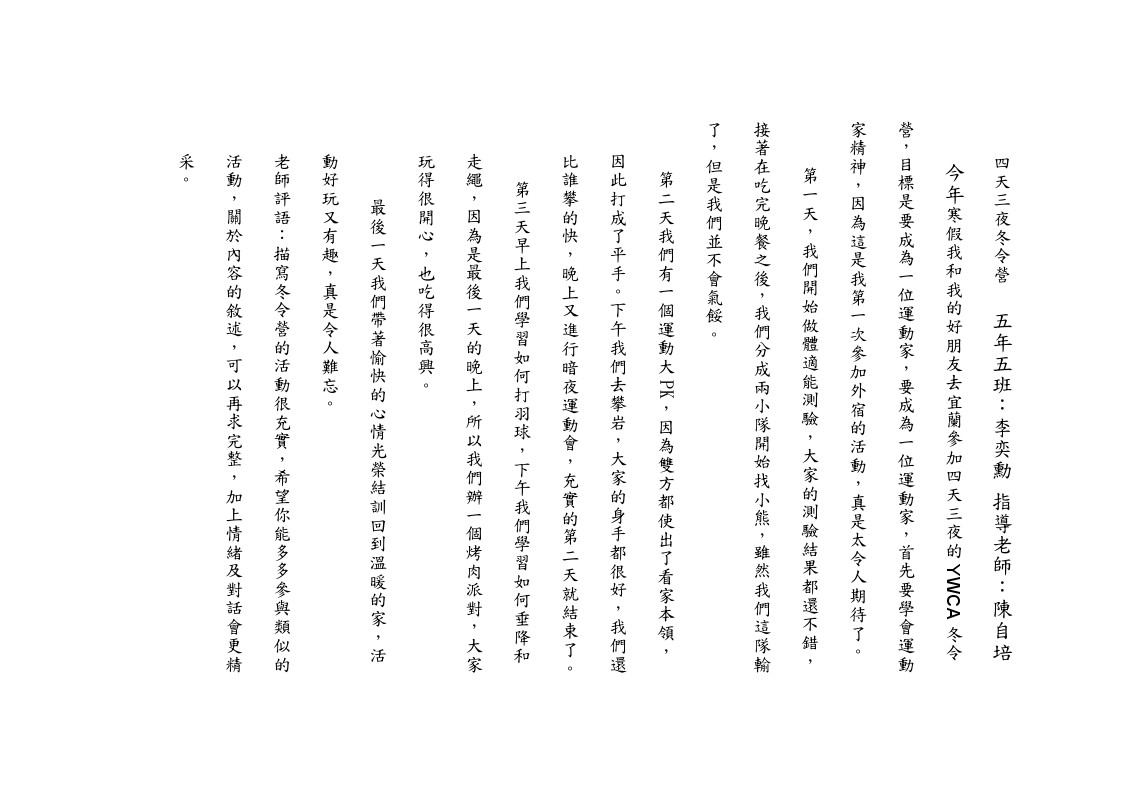 四天三夜冬令營　五年五班：李奕勳 指導老師：陳自培
今年寒假我和我的好朋友去宜蘭參加四天三夜的 YWCA 冬令
營，目標是要成為一位運動家，要成為一位運動家，首先要學會運動
家精神，因為這是我第一次參加外宿的活動，真是太令人期待了。
第一天，我們開始做體適能測驗，大家的測驗結果都還不錯，
接著在吃完晚餐之後，我們分成兩小隊開始找小熊，雖然我們這隊輸
了，但是我們並不會氣餒。
第二天我們有一個運動大 PK，因為雙方都使出了看家本領，
因此打成了平手。下午我們去攀岩，大家的身手都很好，我們還
比誰攀的快，晚上又進行暗夜運動會，充實的第二天就結束了。
第三天早上我們學習如何打羽球，下午我們學習如何垂降和
走繩，因為是最後一天的晚上，所以我們辦一個烤肉派對，大家
玩得很開心，也吃得很高興。
最後一天我們帶著愉快的心情光榮結訓回到溫暖的家，活
動好玩又有趣，真是令人難忘。
老師評語：描寫冬令營的活動很充實，希望你能多多參與類似的
活動，關於內容的敘述，可以再求完整，加上情緒及對話會更精
采。